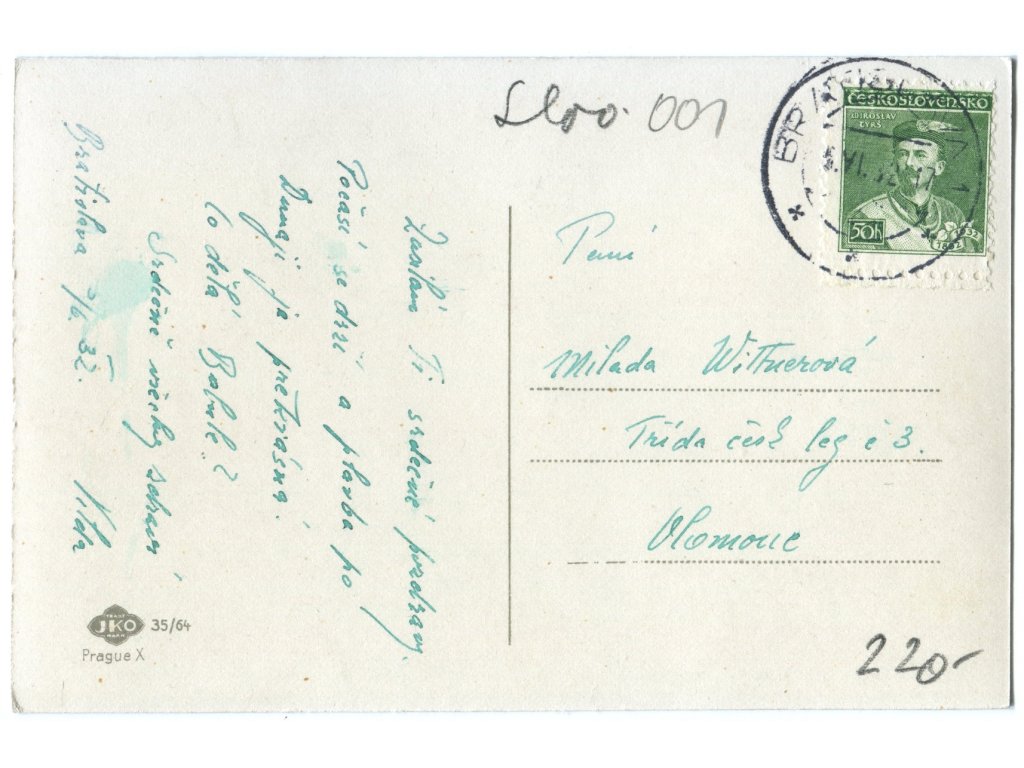 Slov. 001
BRATISLAVA 1
ČESKOSLOVENSKO
MIROSLAV
TYRŠ
50h
1932
1832
Zasílám Ti srdečné pozdravy.
Počasí se drží a plavba po
Dunaji je překrásná.
Co dělá Babule?
Srdečně všecky zdraví
Bratislava 5/6. 32.
Paní
Milada Wittnerová
Třída čsk leg č 3.
Olomouc
TRADE
JKO
MARK
35/64
Prague X
220-